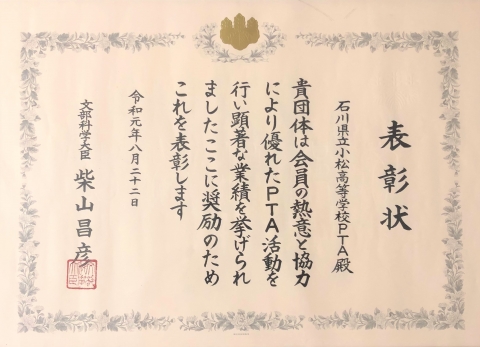 表彰状
石川県立小松高等学校PTA殿
貴団体は会員の熱意と協力
により優れたPTA活動を
行い顕著な業績を挙げられ
ましたここに奨励のため
これを表彰します
令和元年八月二十二日
文部科学大臣 柴山昌彦